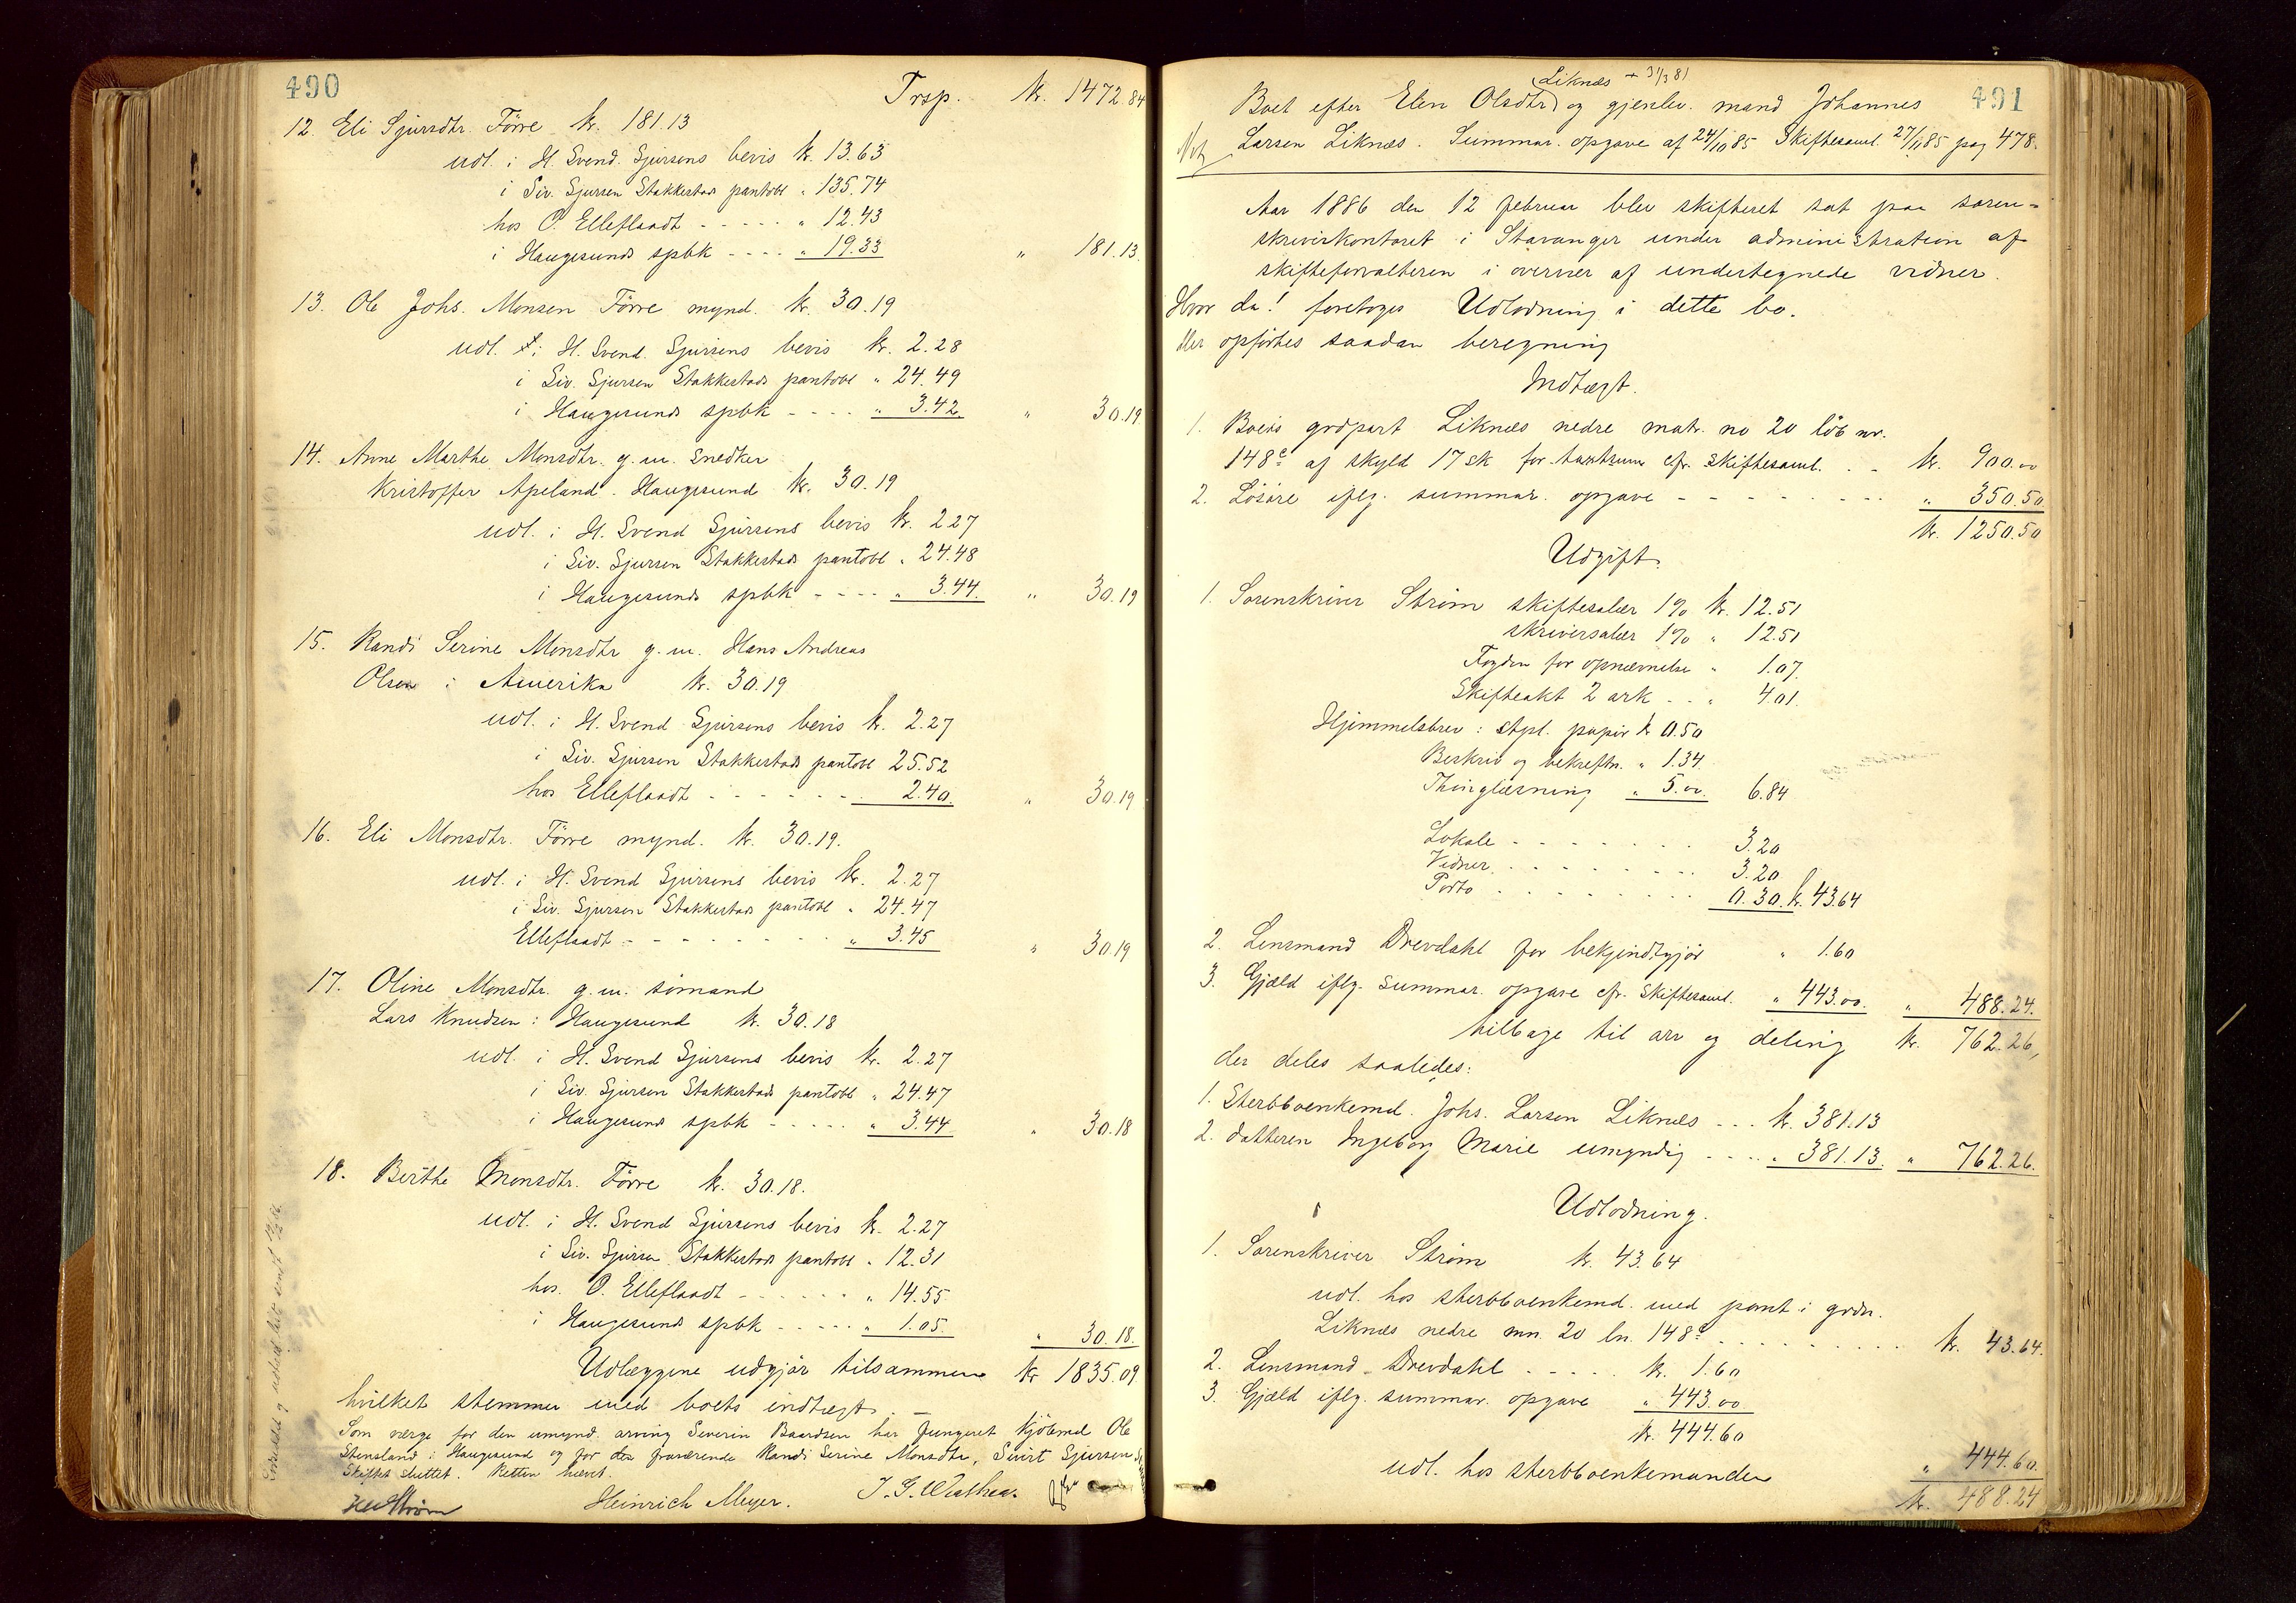 490
Trsp. Kr. 1472.84
12. Eli Sjursdtr. Förre kr. 181.13
udl. i H. Svend. Sjursens bevis kr. 13.63
i Siv. Sjursen Stakkestads pantobl " 135.74
hos O. Elleflaadt - - - - - " 12.43
i Haugesunds spbk - - - - " 19.33 " 181.13
13. Ole Johs. Monsen Förre mynd. kr. 30.19
udl. i H. Svend. Sjursens bevis kr. 2.28
i Siv. Sjursen Stakkestads pantobl " 24.49
i Haugesunds spbk - - - - " 3.42 " 30.19
14. Anne Marthe Monsdtr. g. m. snedker
Kristoffer Apeland. Haugesund kr. 30.19
udl. i H. Svend Sjursens bevis kr. 2.27
i Siv. Sjursen Stakkestads pantobl " 24.48
i Haugesunds spbk - - - - " 3.44 " 30.19
15. Randi Serine Monsdtr g. m. Hans Andreas
Olsen i Amerika kr. 30.19
udl. i H. Svend Sjursens bevis kr. 2.27
i Siv. Sjursen Stakkestads pantobl 25.52
hos Elleflaadt - - - - - - 2.40 " 30.19
16. Eli Monsdtr. Förre mynd. kr. 30.19.
udl. i H. Svend Sjursens bevis kr. 2.27
i Siv. Sjursen Stakkestads pantobl " 24.47
Elleflaadt - - - - - - - - " 3.45 " 30.19
17. Oline Monsdtr. g. m. sömand
Lars Knudsen i Haugesund kr. 30.18
udl. i H. Svend Sjursens bevis kr. 2.27
i Siv. Sjursen Stakkestads pantobl " 24.47
i Haugesunds spbk - - - - - " 3.44 " 30.18
18. Berthe Monsdtr. Förre kr. 30.18.
udl. i H. Svend Sjursens bevis kr. 2.27
i Siv. Sjursen Stakkestads pantobl " 12.31
hos. O. Elleflaadt - - - - - - " 14.55
i Haugesunds spbk - - - - - " 1.05. " 30.18.
Udlæggene udgjör tilsammen kr 1835.09
hvilket stemmer med boets indtægt. -
Som værge for den umynd. arving Severin Baardsen har fungeret kjöbmd Ole
Stensland i Haugesund og for den fraværende Randi Serine Monsdtr, Sivert Sjursen
Skiftet sluttet. Retten hævet.
Heinrich Meyer. J. G. Wathne.
491
Liknæs + 31/3 81
Boet efter Elen Olsdtr og gjenlev. mand Johannes
Larsen Liknæs. Summar. opgave af 24/10 85 Skiftesaml. 27/11 85 pag 478.
Aar 1886 den 12 februar blev skifteret sat paa soren-
skriverkontoret i Stavanger under administration af
skifteforvalteren i overvær af undertegnede vidner.
Hvor da! foretoges Udlodning i dette bo.
Der opförtes saadan beregning
Indtægt.
1. Boets grdpart Liknæs nedre matr. no 20 löb nr.
148c af skyld 17 sk for taxtsum cfr. skiftesaml. - - kr. 900.00
2. Lösöre iflg. summar. opgave - - - - - - - - " 350.50
kr. 1250.50
Udgift.
1. Sorenskriver Ström skiftesalær 1% kr. 12.51
skriversalær 1% " 12.51
Fogden for opnævnelse " 1.07.
Skifteakt 2 ark - - " 4.01.
Hjemmelsbrev: stpl. papir kr 0.50
Beskriv og bekreftn. " 1.34
Thinglæsning " 5.00. 6.84
Lokale - - - - - - - 3.20
Vidner - - - - - - - 3.20
Porto - - - - - - - - 0.30. kr. 43.64
2. Lensmand Drevdahl for bekjendtgjör " 1.60
3. Gjæld iflg. summar. opgave cfr. skiftesaml. " 443.00. " 488.24.
tilbage til arv og deling kr. 762.26,
der deles saaledes:
1. Sterbboenkemd. Johs. Larsen Liknæs - - - kr. 381.13
2. datteren Ingeborg Marie umyndig - - - - " 381.13. " 762.26.
Udlodning.
1. Sorenskriver Ström kr. 43.64
udl. hos sterbboenkemd. med pant i grdn.
Liknæs nedre mn. 20 ln. 148c - - - - - - - kr. 43.64.
2. Lensmand Drevdahl - - - - - kr. 1.60
3. Gjæld iflg. summar. opgave " 443.00
kr. 444.60
udl. hos sterbboenkemanden " 444.60.
kr. 488.24